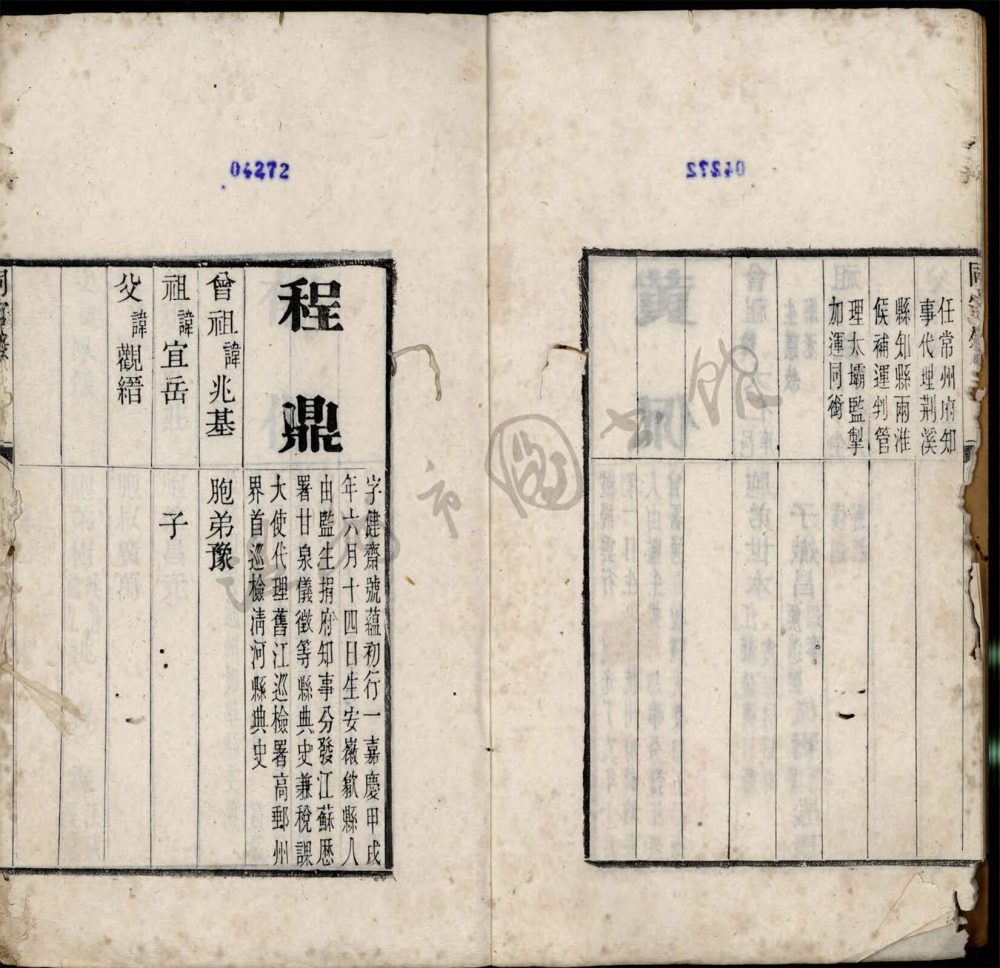 任常州府知
事代理荆溪
縣知縣兩淮
候補運判管
理太壩監掣
加運同銜
04272
程鼎
字健齋號蘊初行一嘉慶甲戌
年六月十四日生安徽歙縣人
由監生捐府知事分發江蘇歷
署甘泉儀徵等縣典史兼稅課
大使代理舊江巡檢署高郵州
界首巡檢淸河縣典史
曾祖諱兆基
胞弟豫
祖諱宜岳
子
父諱觀縉